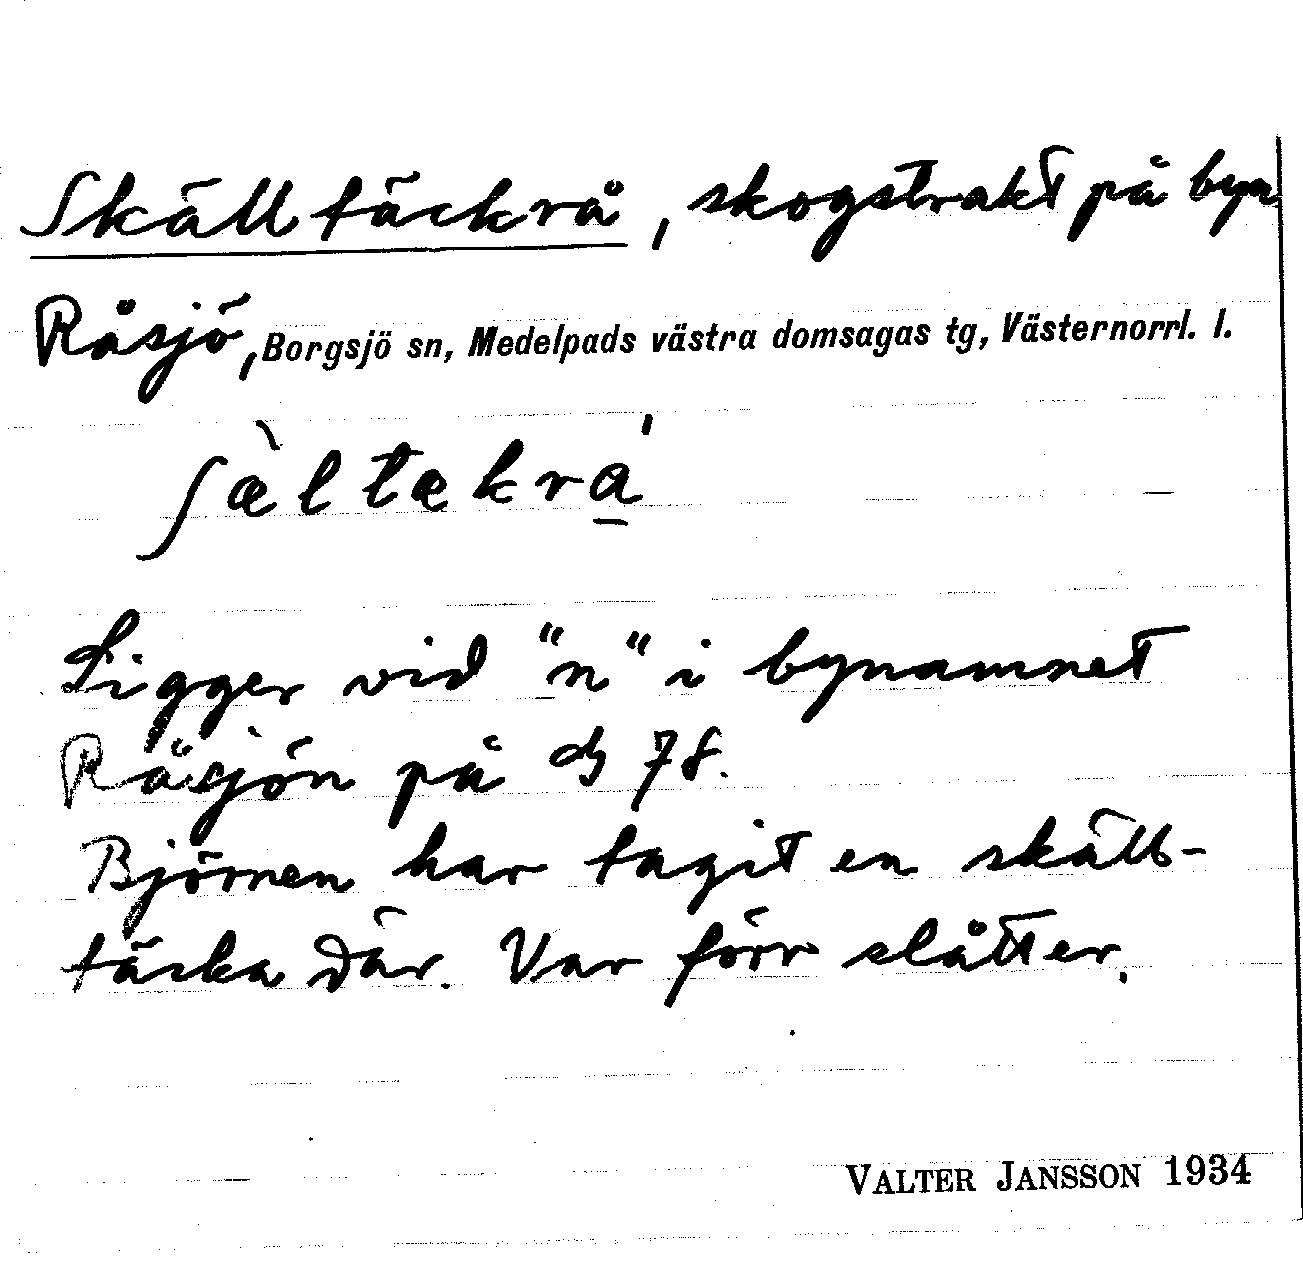 Skälltäckrå, skogstrakt på byn
Råsjö, Borgsjö sn, Medelpads västra domsagas tg, Västernorrl. l.
ʃæ̀ltækrá̱
Ligger vid "n" i bynamnet
Råsjön på 78.
Björnen har tagit en skäll-
täcka där. Var förr slåtter.
VALTER JANSSON 1934